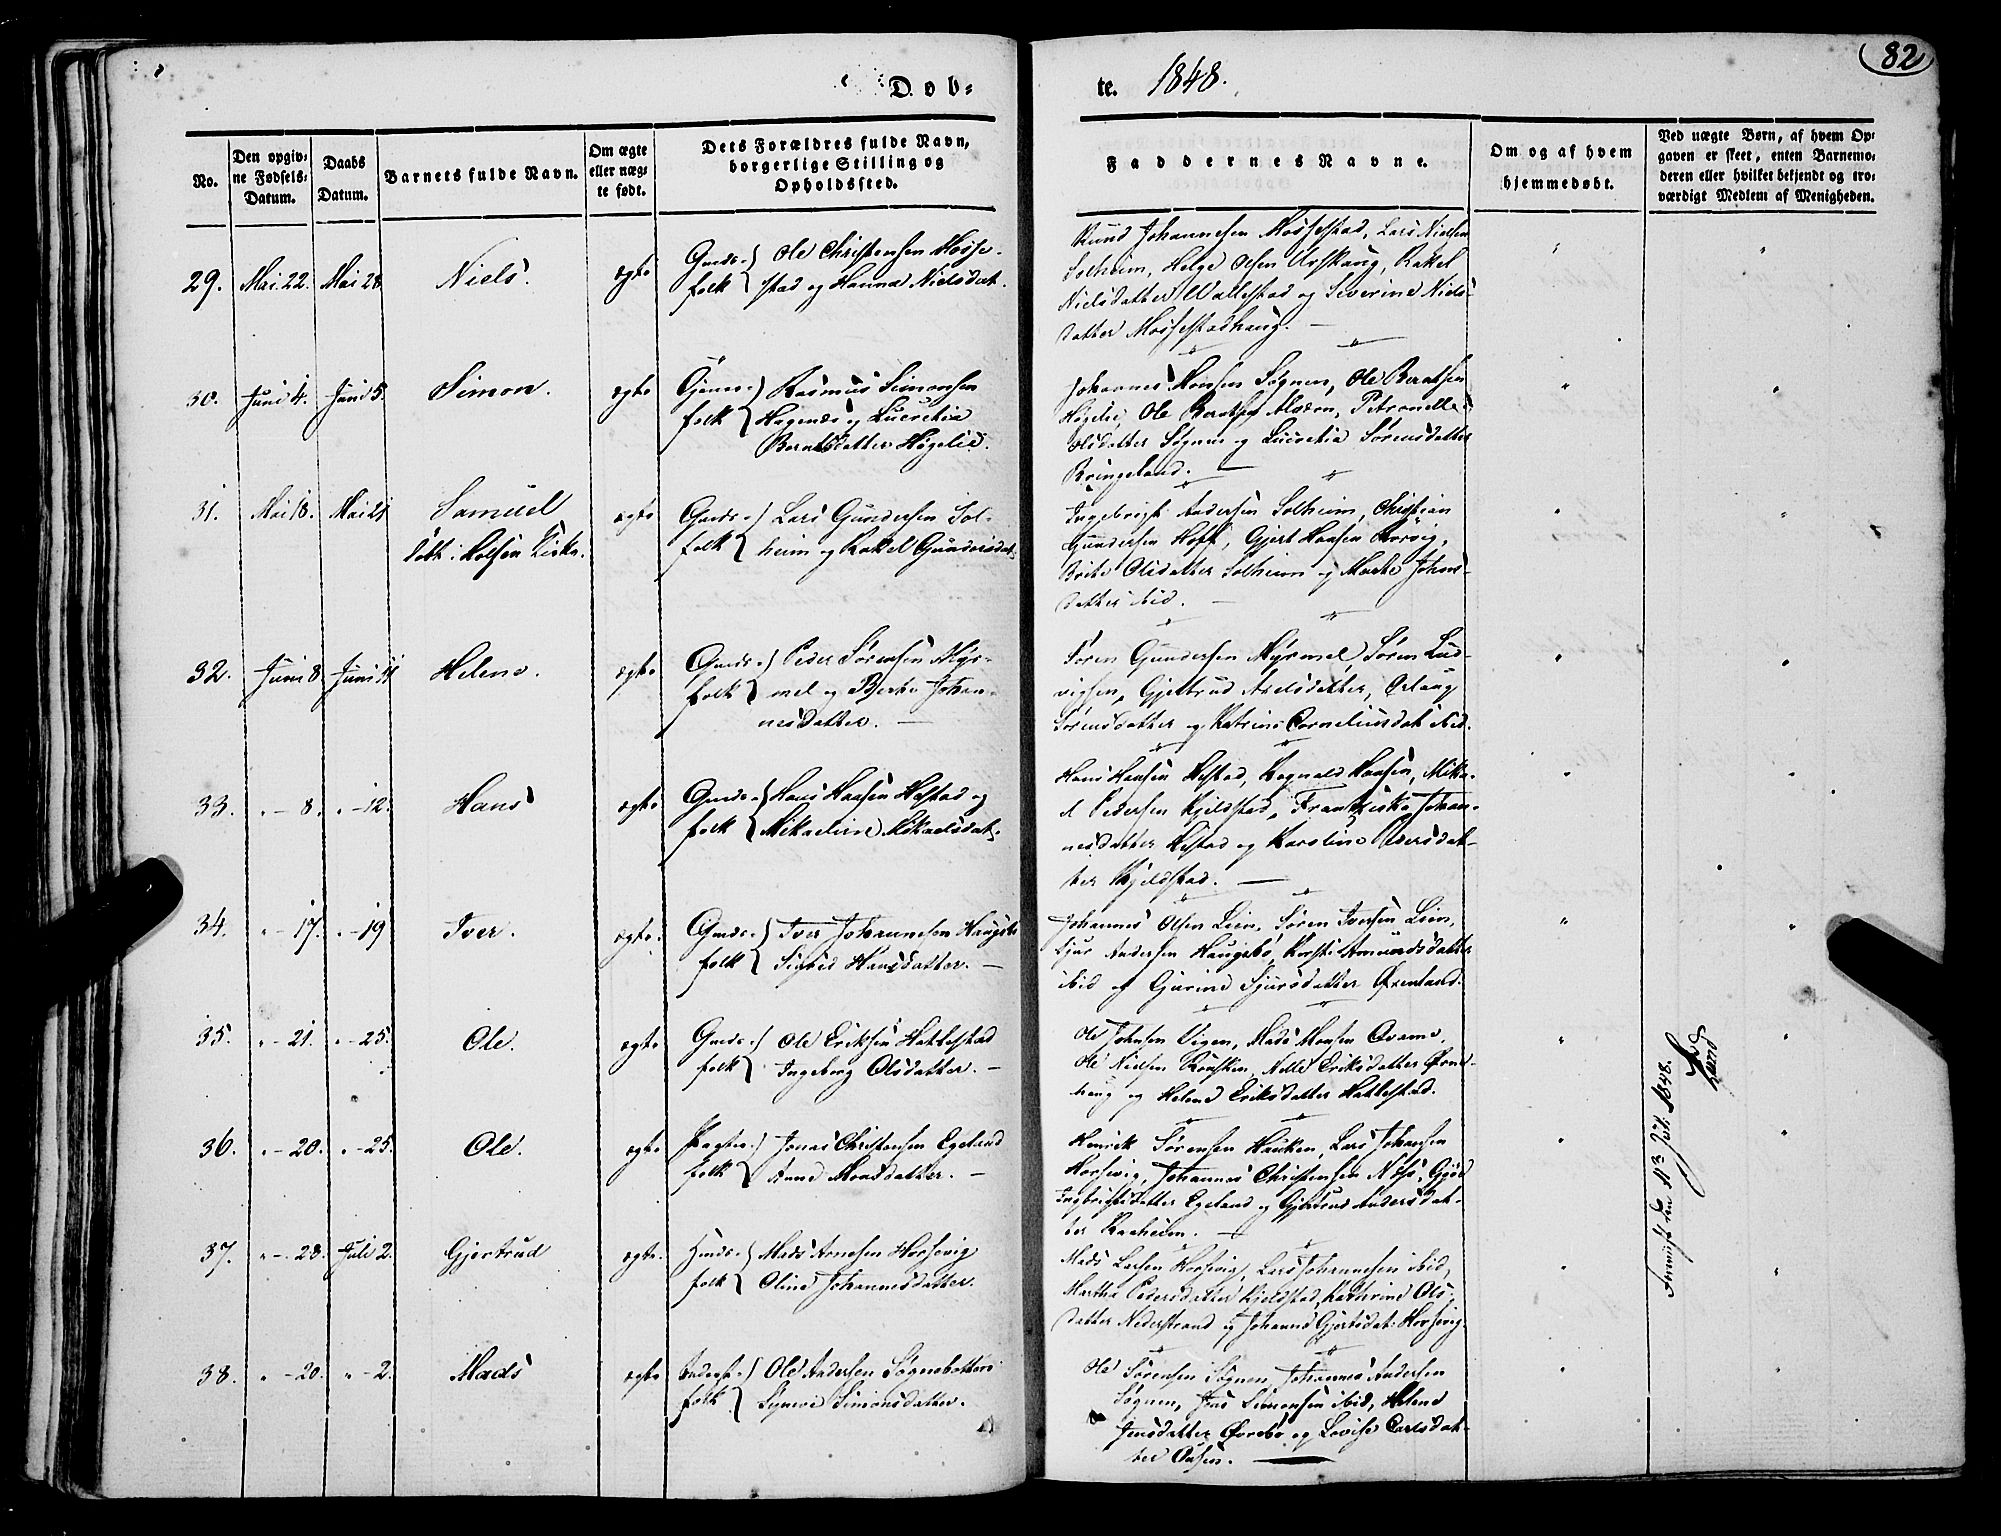 82
Døb=
te. 1848.
No.
Den opgiv=
ne Fødsels=
Datum.
Daabs
Datum.
Barnets fulde Navn.
Om ægte
eller uæg=
te født.
Dets Forældres fulde Navn,
borgerlige Stilling og
Opholdssted.
Faddernes Navne.
Om og af hvem
hjemmedøbt.
Ved uægte Børn, af hvem Op=
gaven er skeet, enten Barnemo=
deren eller hvilket bekjendt og tro=
værdigt Medlem af Menigheden.
29. Mai 22. Mai 28 Niels. ægte
Gmds= folk
Ole Christensen Mosse=
stad og Hanna Nielsdat.
Knud Johannesen Mossestad, Lars Nielsen
Solheim, Helge Olsen Urskaug, Rakel
Nielsdatter Wallestad og Severine Niels=
datter Mossestadhaug. —
30. Juni 4. Juni 5. Simon. ægte
folk
Rasmus Simonsen
og Lucretia
Berntsdatter Høgelid.
Johannes Monsen Søgnen, Ole Berntsen
Høgelid, Ole Berntsen Petronelle
Olsdatter Søgnen og Lucretia Sørensdatter
Bringeland. —
31. Mai 18. Mai 21 Samuel ægte
døbt i Holsen Kirke.
Gmds= folk
Lars Gundersen Sol=
heim og Rakel Gundersdat.
Ingebrigt Andersen Solheim, Christian
Gundersen Hoff, Gjert Hansen
Brite Olsdatter Solheim og Marte Johns=
datter ibid. —
32. Juni 8 Juni 11 Helene. ægte
Gmds= folk
Peder Sørensen Myr=
mel og Berte Johan=
nesdatter. —
Søren Gundersen Myrmel, Søren Lud=
vigsen, Gjertrud Axelsdatter, Orlaug
Sørensdatter og Katrine Corneliusdat ibid.
33. " - 8. " - 12. Hans ægte
Gmds= folk
Hans Hansen Hestad og
Mikaeline Mikaelsdat.
Hans Hansen Hestad, Rognald Hansen, Mika=
el Pedersen Kjelstad, Frantziska Johan=
nesdatter Hestad og Karoline Pedersdat=
ter Kjeldstad. —
34. " - 17. " - 19 Iver. ægte.
Gmds= folk
Iver Johannesen Haugsbø
Sigrid Hansdatter. —
Johannes Olsen Lien, Søren Iversen Lien,
Sjur Andersen Haugsbø, Kirsti Amundsdatter
ibid og Gurine Sjursdatter Øxenland.
35. " - 21. " - 25. Ole. ægte
Gmds= folk
Ole Eriksen Hatlestad
Ingeborg Olsdatter. —
Ole Johnsen Vigen, Mads Monsen Qvame,
Ole Nielsen Nelle Eriksdatter Ørne=
haug og Helene Eriksdatter Hatlestad.
36. " - 20. " - 25. Ole. ægte
folk
Jonas Christensen Egeland
Anne Monsdatter. —
Henrik Sørensen Hauken, Lars Johansen
Horsevig, Johannes Christensen
Ingbrigtsdatter Egeland og Gjertrud Andersdat=
ter —
37. " - 28. Juli 2. Gjertrud ægte.
Hmds= folk
Mads Arnesen Horsevig
Oline Johannesdatter.
Mads Larsen Horsevig, Lars Johannesen ibid,
Martha Pedersdatter Kjeldstad, Kathrine Ols=
datter Nederstrand og Johanne Gjertsdat: Horsevig.
38. " - 20. " - 2. Mads ægte
folk
Ole Andersen Søgnebotten
Synneve Simonsdatter.
Ole Sørensen Søgnen, Johannes Andersen
Søgnen, Jens Simonsen ibid, Helene
Jensdatter Øvrebø og Lovise Carlsdat=
ter —
Juli 1848.
Lund